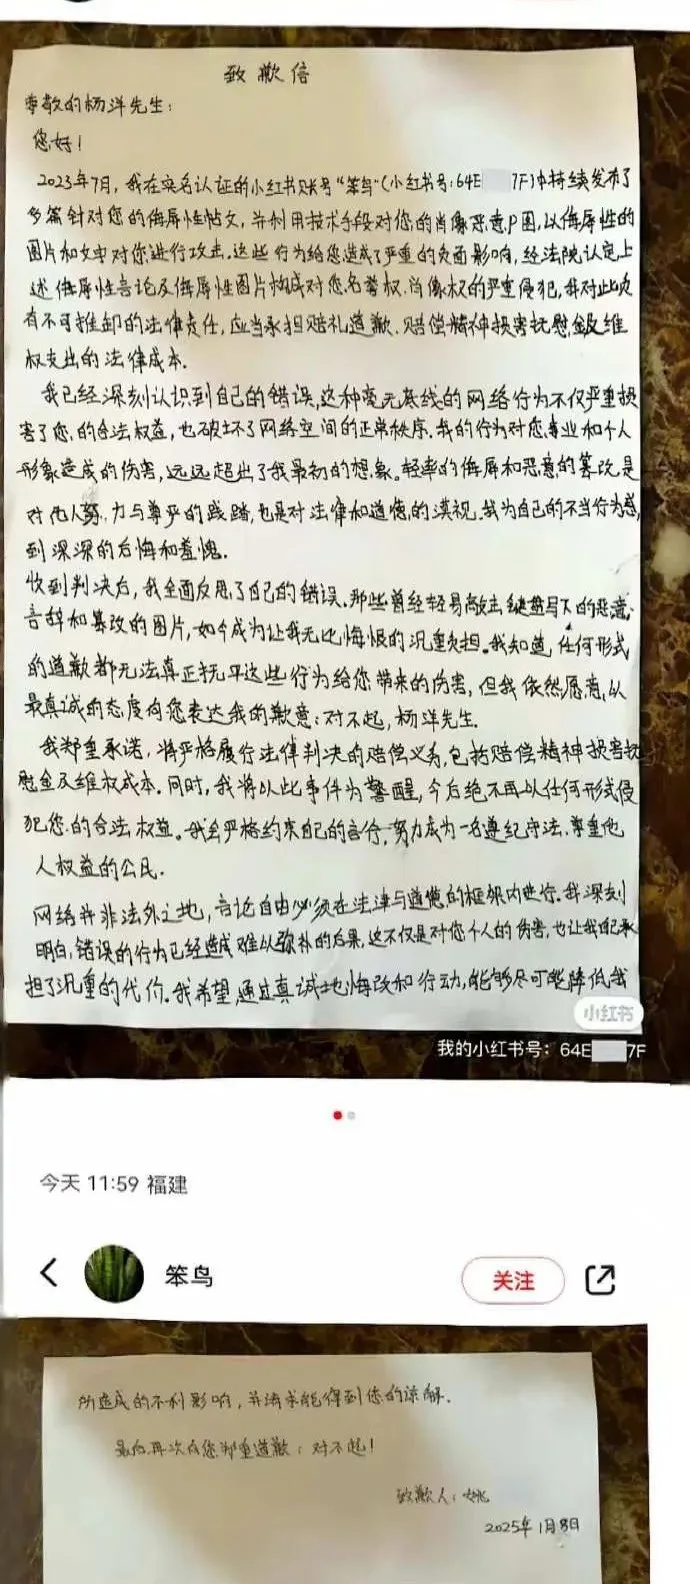 致歉信
尊敬的杨洋先生：
您好！
2023年7月，我在实名认证的小红书账号“笨鸟”(小红书号：64E 7F)中持续发布了
多篇针对您的侮辱性帖文，并利用技术手段对您的肖像恶意P图，以侮辱性的
图片和文字对您进行攻击。这些行为给您造成了严重的负面影响，经法院认定上
述侮辱性言论及侮辱性图片构成对您名誉权、肖像权的严重侵犯，我对此负
有不可推卸的法律责任，应当承担赔礼道歉、赔偿精神损害抚慰金及维
权支出的法律成本.
我已经深刻认识到自己的错误，这种毫无底线的网络行为不仅严重损
害了您的合法权益，也破坏了网络空间的正常秩序.我的行为对您事业和个人
形象造成的伤害，远远超出了我最初的想象。轻率的侮辱和恶意的篡改是
对他人努力与尊严的践踏，也是对法律和道德的漠视。我为自己的不当行为感
到深深的后悔和羞愧.
收到判决后，我全面反思了自己的错误.那些曾经轻易敲击键盘写下的恶意
言辞和篡改的图片，如今成为让我无比悔恨的沉重负担。我知道，任何形式
的道歉都无法真正抚平这些行为给您带来的伤害，但我依然愿意，以
最真诚的态度向您表达我的歉意：对不起，杨洋先生.
我郑重承诺，将严格履行法律判决的赔偿义务，包括赔偿精神损害抚
慰金及维权成本.同时，我将以此事件为警醒，今后绝不再以任何形式侵
犯您的合法权益。我会严格约束自己的言行，努力成为一名遵纪守法、尊重他
人权益的公民.
网络并非法外之地，言论自由必须在法律与道德的框架内进行.我深刻
明白，错误的行为已经造成难以弥补的后果，这不仅是对您个人的伤害，也让我自己承
担了沉重的代价.我希望，通过真诚地悔改和行动，能够尽可能降低我
小红书
我的小红书号：64E 7F
今天 11:59 福建
笨鸟
关注
所造成的不利影响，并请求能得到您的谅解.
最后再次向您郑重道歉：对不起！
致歉人：姚
2025年1月8日